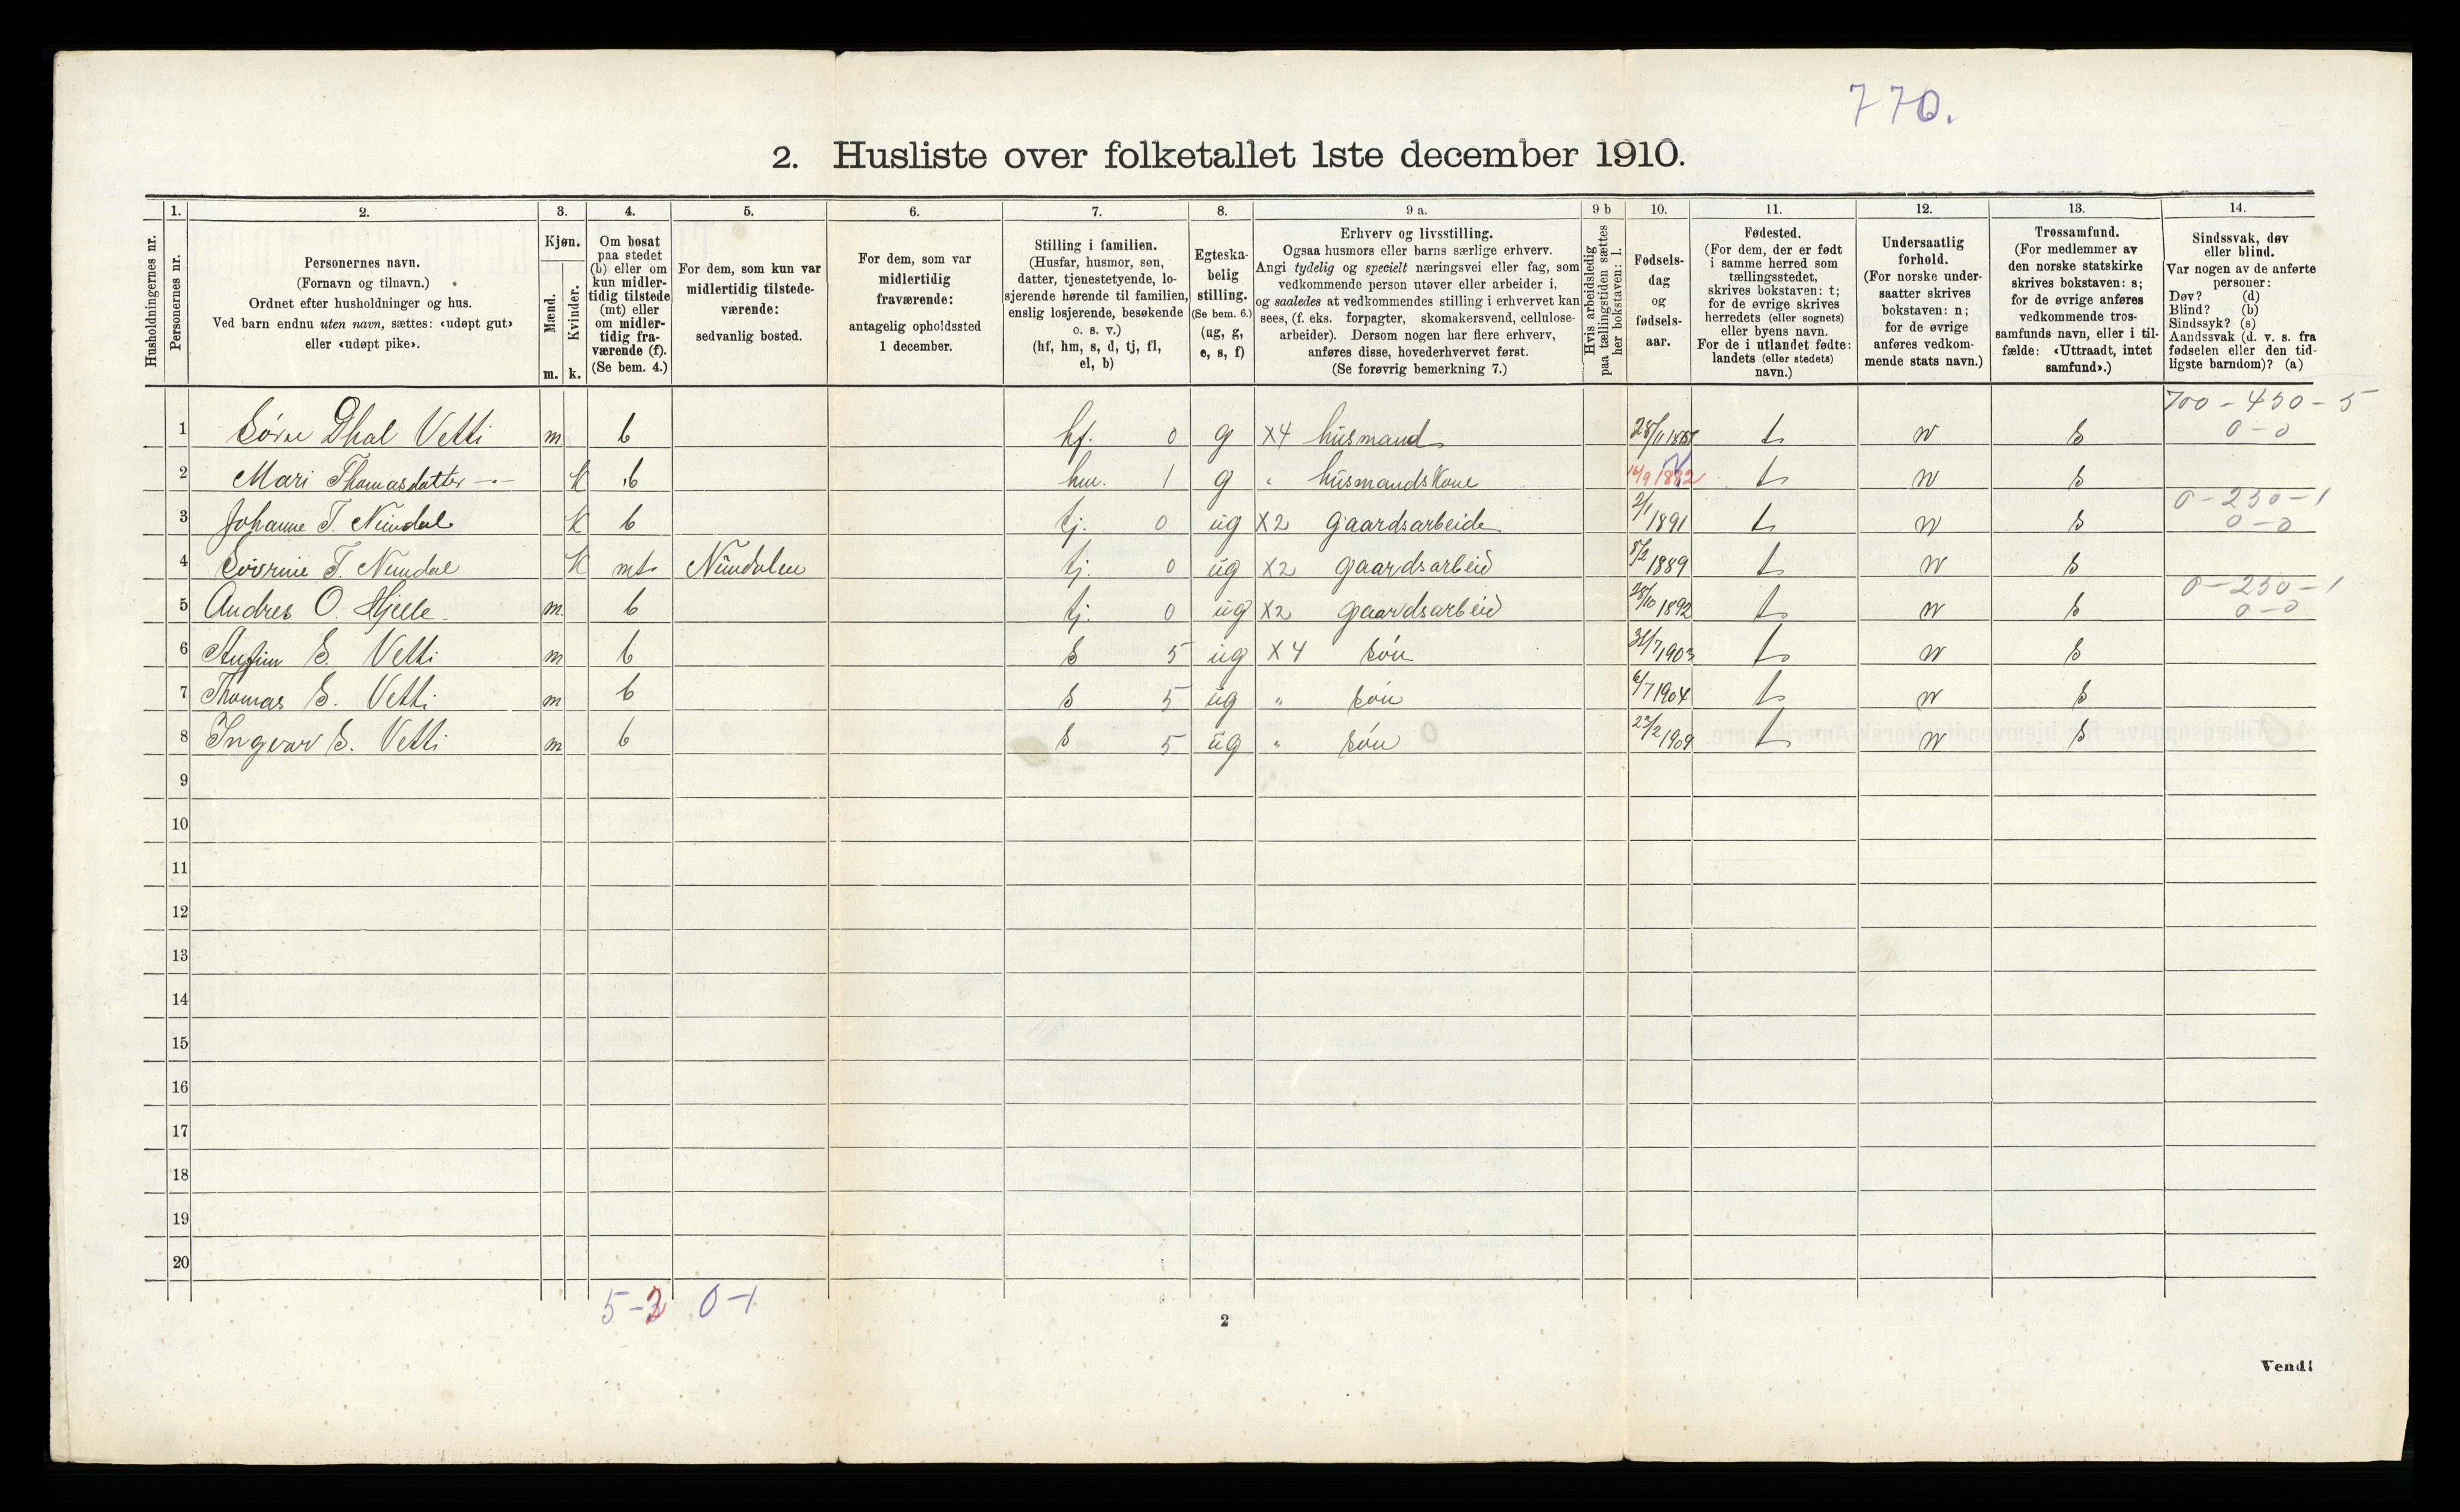 770.
2. Husliste over folketallet 1ste december 1910.
1. 2. 3. 4. 5. 6. 7. 8. 9 a. 9 b 10. 11. 12. 13. 14.
Husholdningernes nr.
Personernes nr.
Personernes navn.
(Fornavn og tilnavn.)
Ordnet efter husholdninger og hus.
Ved barn endnu uten navn, sættes: «udøpt gut»
eller «udøpt pike».
Kjøn.
Mænd.
Kvinder.
m. k.
Om bosat
paa stedet
(b) eller om
kun midler-
tidig tilstede
(mt) eller
om midler-
tidig fra-
værende (f).
(Se bem. 4.)
For dem, som kun var
midlertidig tilstede-
værende:
sedvanlig bosted.
For dem, som var
midlertidig
fraværende:
antagelig opholdssted
1 december.
Stilling i familien.
(Husfar, husmor, søn,
datter, tjenestetyende, lo-
sjerende hørende til familien,
enslig losjerende, besøkende
o. s. v.)
(hf, hm, s, d, tj, fl,
el, b)
Egteska-
belig
stilling.
(Se bem. 6.)
(ug, g,
e, s, f)
Erhverv og livsstilling.
Ogsaa husmors eller barns særlige erhverv.
Angi tydelig og specielt næringsvei eller fag, som
vedkommende person utøver eller arbeider i,
og saaledes at vedkommendes stilling i erhvervet kan
sees, (f. eks. forpagter, skomakersvend, cellulose-
arbeider). Dersom nogen har flere erhverv,
anføres disse, hovederhvervet først.
(Se forøvrig bemerkning 7.)
Hvis arbeidsledig
paa tællingstiden sættes
her bokstaven: l.
Fødsels-
dag
og
fødsels-
aar.
Fødested.
(For dem, der er født
i samme herred som
tællingsstedet,
skrives bokstaven: t;
for de øvrige skrives
herredets (eller sognets)
eller byens navn.
For de i utlandet fødte:
landets (eller stedets)
navn.)
Undersaatlig
forhold.
(For norske under-
saatter skrives
bokstaven: n;
for de øvrige
anføres vedkom-
mende stats navn.)
Trossamfund.
(For medlemmer av
den norske statskirke
skrives bokstaven: s;
for de øvrige anføres
vedkommende tros-
samfunds navn, eller i til-
fælde: «Uttraadt, intet
samfund».)
Sindssvak, døv
eller blind.
Var nogen av de anførte
personer:
Døv? (d)
Blind? (b)
Sindssyk? (s)
Aandssvak (d. v. s. fra
fødselen eller den tid-
ligste barndom)? (a)
700 - 450 - 5
1 Sørn Dhal Vetti m b hf. 0 g X4 husmand t n s 0 - 0
2 Mari Thomasdatter -"- k b hm. 1 g " husmandskone 16/9 1882 t n s
0 - 250 - 1
3 Johanne T. Nundal k b tj. 0 ug X2 gaardsarbeide 2/1 1891 t n s 0 - 0
4 Søvrine T. Nundal k mt Nundalen tj. 0 ug X2 gaardsarbeid 5/2 1889 t n s
0 - 250 - 1
5 Andres O. Hjelle m b tj. 0 ug X2 gaardsarbeid 28/10 1892 t n s 0 - 0
6 Anfin S. Vetti m b s 5 ug X 4 søn 31/7 1903 t n s
7 Thomas S. Vetti m b s 5 ug " søn 6/7 1904 t n s
8 Ingvar S. Vetti m b s 5 ug " søn 0 22/2 1909 t n s
9
10
11
12
13
14
15
16
17
18
19
20
5-2 0-1
2
Vend!